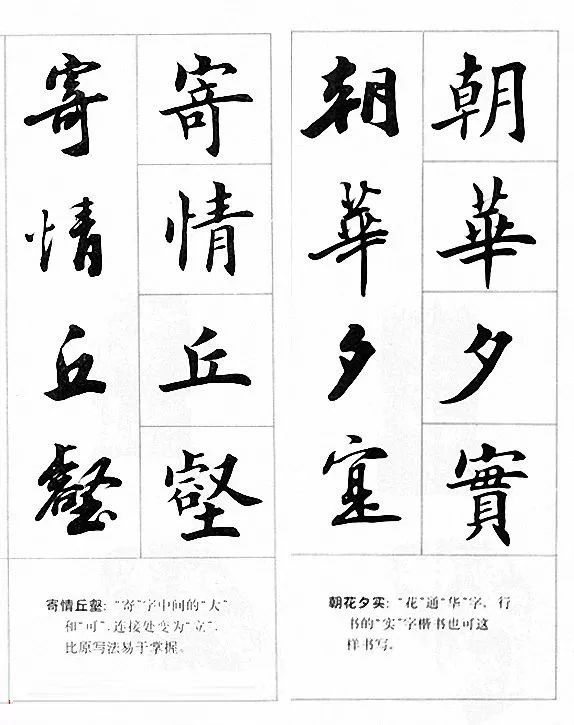 朝華夕實
朝華夕寔
朝花夕实：“花”通“华”字，行
书的“实”字楷书也可这
样书写。
寄情丘壑
寄情丘壑
寄情丘壑：“寄”字中间的“大”
和“可”，连接处变为“立”，
比原写法易于掌握。